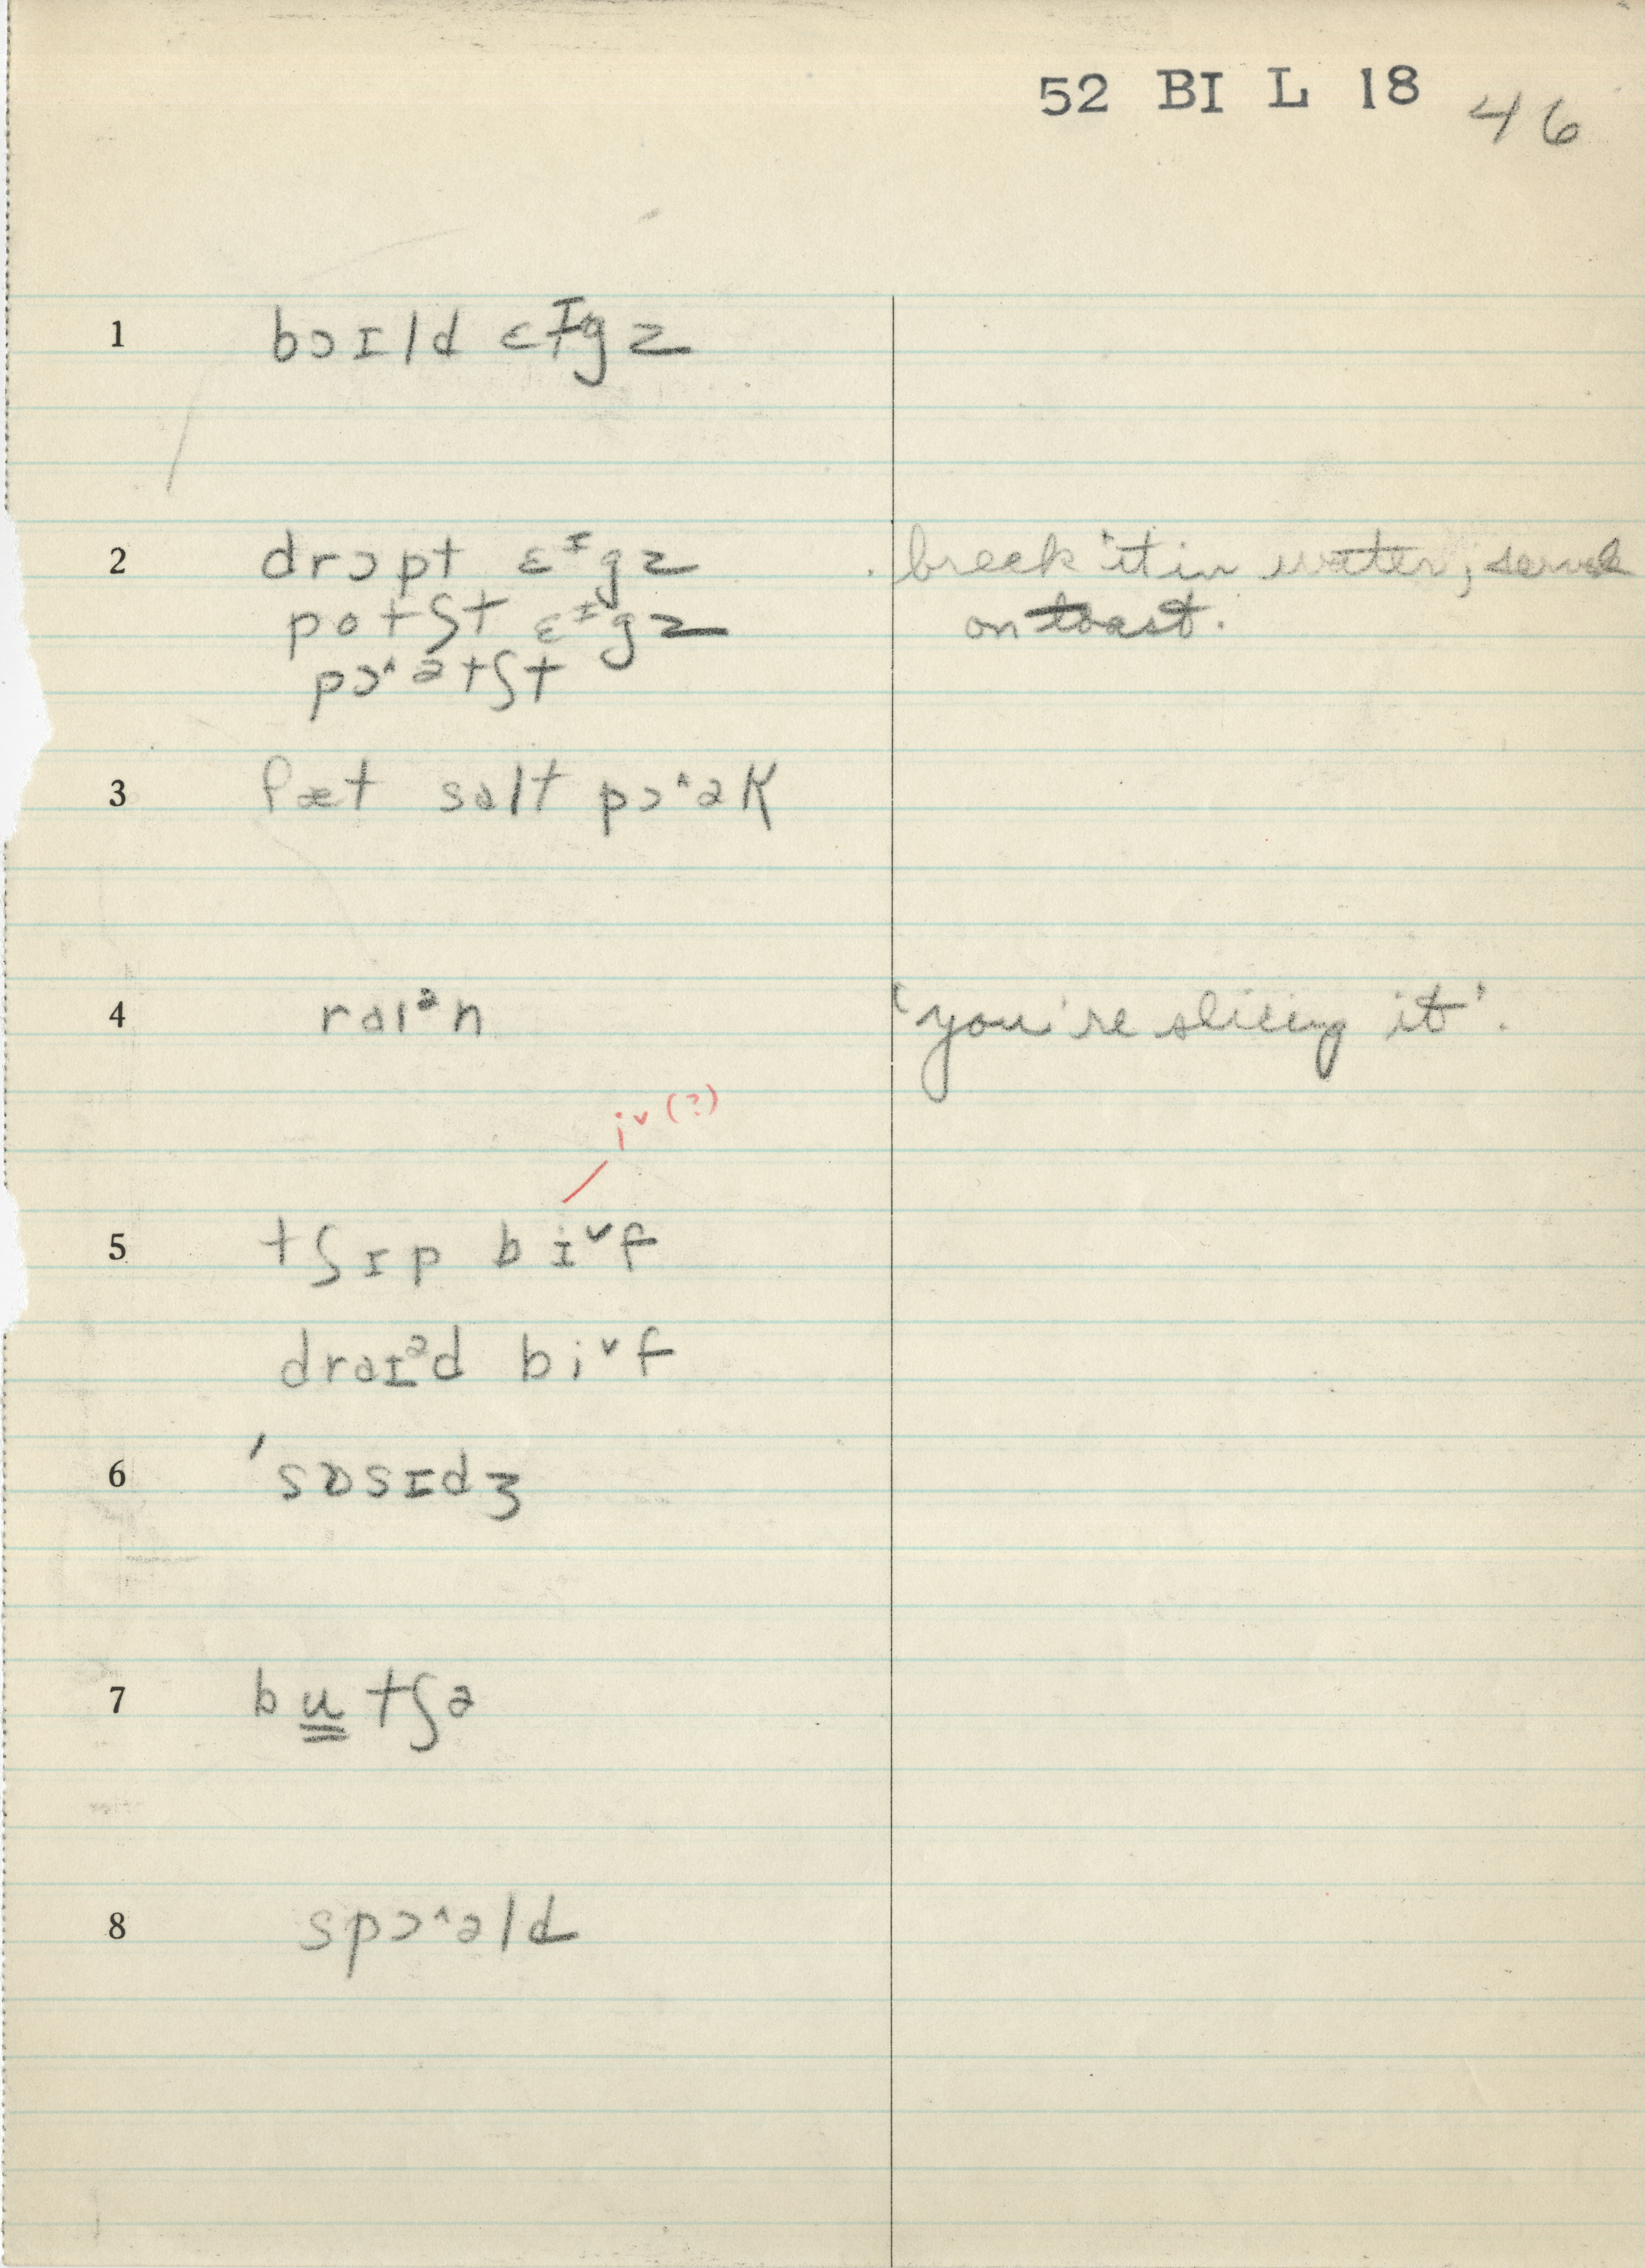 52 BI L 18 46
1 bɔɪld ɛᶦgz
2 drɔpt ɛᶦgz break it in water; serve
potʃt ɛᶦgz on toast.
pɔ˄ətʃt
3 fæt salt pɔ˄ək
4 raɪᵊn 'you're slicing it'.
i˅(?)
5 tʃɪp bi˅f
draɪᵊd bi˅f
6 ˈsɒsɪdʒ
7 bu̳tʃə
8 spɔ˄əld